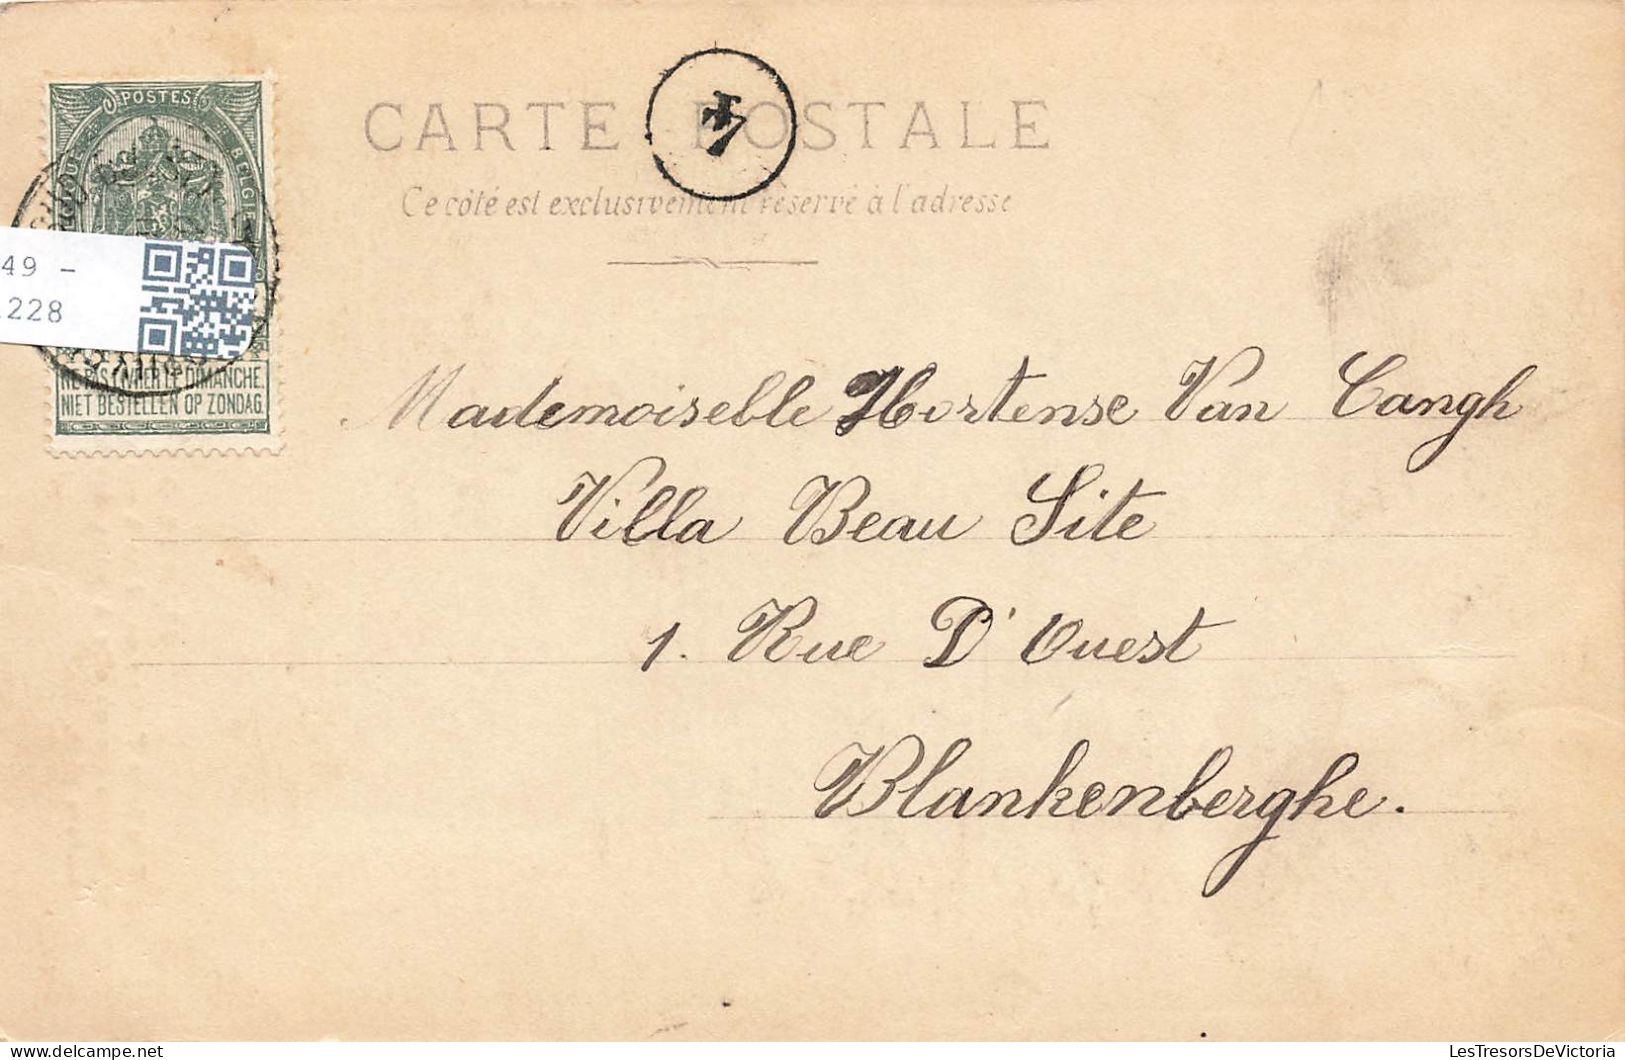 POSTES
BELGI
CARTE POSTALE
Ce côté est exclusivement réservé à l'adresse
49 -
228
NE PAS LIVRER LE DIMANCHE.
NIET BESTELLEN OP ZONDAG.
Mademoiselle Hortense Van Cangh
Villa Beau Site
1. Rue D'Ouest
Blankenberghe.
LesTresorsDeVictoria